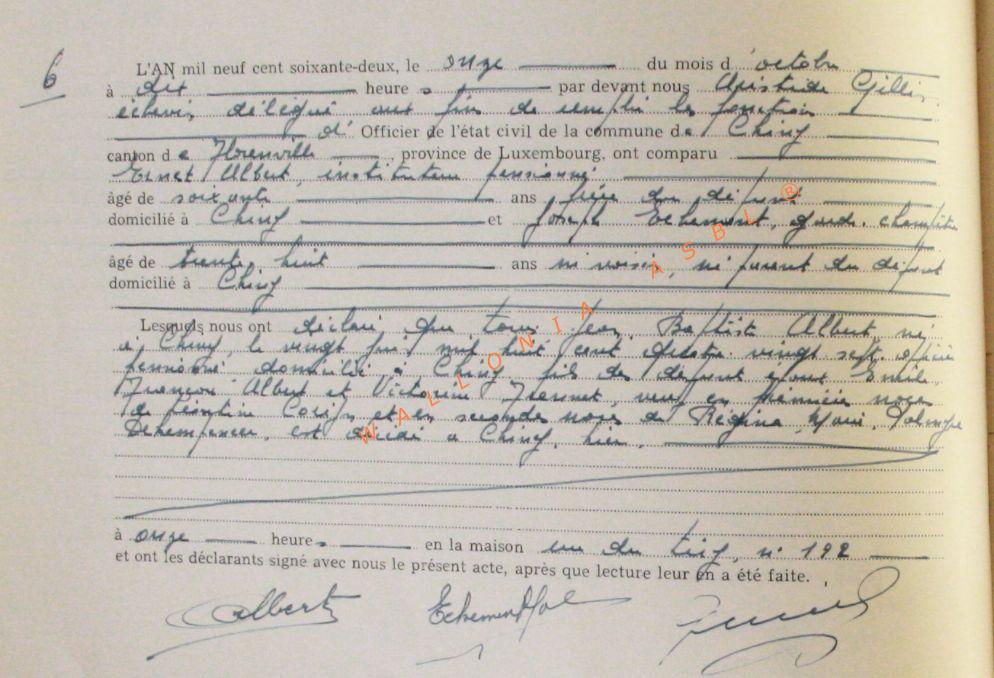 6
L'AN mil neuf cent soixante-deux, le onze du mois d'octobre
à dix heures par devant nous Aristide Gillis
échevin délégué aux fins de remplir les fonctions
d' Officier de l'état civil de la commune de Chiny
canton de Florenville, province de Luxembourg, ont comparu
Ernest Albert, instituteur pensionné
âgé de soixante ans frère du défunt
domicilié à Chiny et Joseph Echement, garde champêtre
âgé de trente huit ans ni voisin, ni parent du défunt
domicilié à Chiny
Lesquels nous ont déclaré que Jean Baptiste Albert né
à Chiny, le vingt mil huit cent quatre vingt sept
pensionné domicilié à Chiny fils des défunts époux Emile
François Albert et Victorine veuf en premières noces
de Léontine et en secondes noces de Régina Marie
est décédé à Chiny, hier,
à onze heures en la maison rue du n° 192
et ont les déclarants signé avec nous le présent acte, après que lecture leur en a été faite.
Albert Echement
WALLONIA ASBL ®